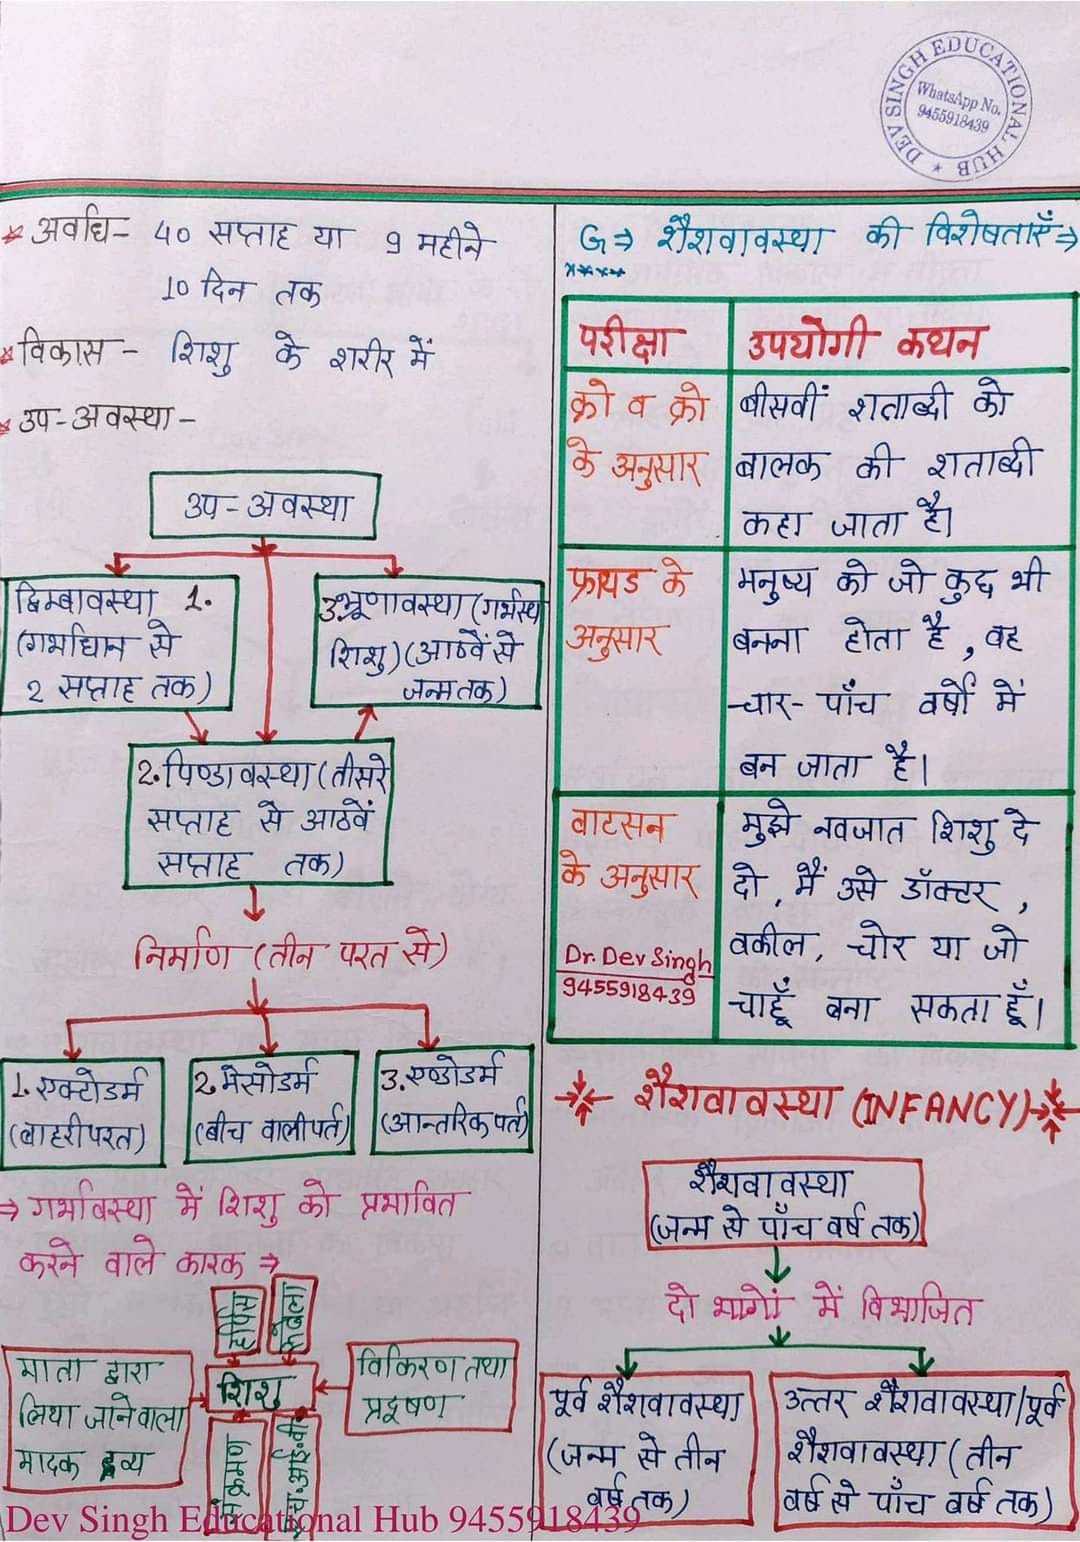 DEV SINGH EDUCATIONAL HUB
WhatsApp No.
9455918439
* अवधि- 40 सप्ताह या 9 महीने
10 दिन तक
* विकास - शिशु के शरीर में
* उप-अवस्था -
उप-अवस्था
डिम्बावस्था 1.
(गर्भाधान से
2 सप्ताह तक)
3.भ्रूणावस्था (गर्भस्थ
शिशु) (आठवें से
जन्म तक)
2.पिण्डावस्था (तीसरे
सप्ताह से आठवें
सप्ताह तक)
निर्माण (तीन परत से)
1. एक्टोडर्म
(बाहरी परत)
2. मेसोडर्म
(बीच वाली पर्त)
3. एण्डोडर्म
(आन्तरिक पर्त)
⇒ गर्भावस्था में शिशु को प्रभावित
करने वाले कारक ⇒
माता द्वारा
लिया जाने वाला
मादक द्रव्य
शिशु
विकिरण तथा
प्रदूषण
संक्रमण
एच.आई.वी.
G ⇒ शैशवावस्था की विशेषताएँ ⇒
परीक्षा उपयोगी कथन
क्रो व क्रो
के अनुसार
बीसवीं शताब्दी को
बालक की शताब्दी
कहा जाता है।
फ्रायड के
अनुसार
मनुष्य को जो कुछ भी
बनना होता है, वह
चार- पाँच वर्षों में
बन जाता है।
वाटसन
के अनुसार
Dr. Dev Singh
9455918439
मुझे नवजात शिशु दे
दो, मैं उसे डॉक्टर,
वकील, चोर या जो
चाहूँ बना सकता हूँ।
शैशवावस्था (INFANCY)
शैशवावस्था
(जन्म से पाँच वर्ष तक)
दो भागों में विभाजित
पूर्व शैशवावस्था
(जन्म से तीन
वर्ष तक)
उत्तर शैशवावस्था/पूर्व
शैशवावस्था (तीन
वर्ष से पाँच वर्ष तक)
Dev Singh Educational Hub 9455918439